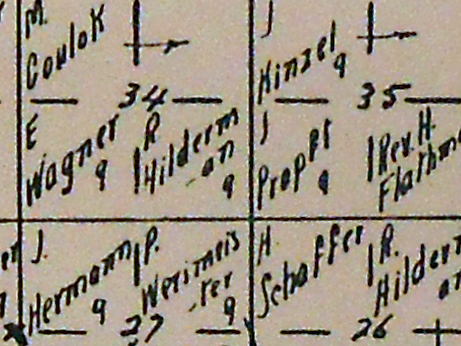 M.
Coulok
J
Hinzel
9
34
35
E
Wagner
9
R
Hilderm
an
9
J
Propft
9
Rev. H.
Flathm
J.
Hermann
9
P.
Wesimeis
ter
9
H.
Schaffer
R.
Hilder
an
27
26